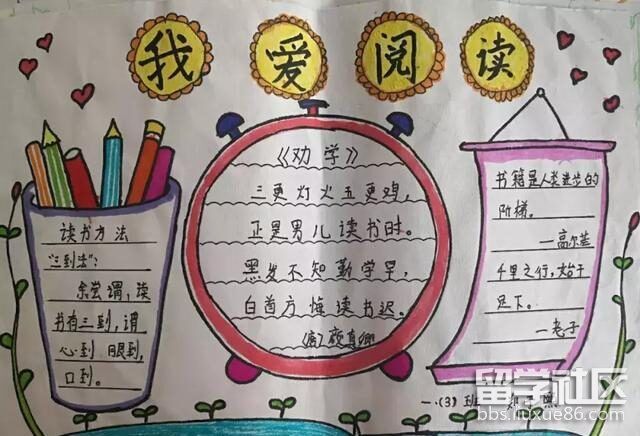 我爱阅读
读书方法
"三到法":
余尝谓,读
书有三到,谓
心到 眼到,
口到。
《劝学》
三更灯火五更鸡,
正是男儿读书时。
黑发不知勤学早,
白首方悔读书迟。
(唐)颜真卿
书籍是人类进步的
阶梯。
—高尔基
千里之行,始于
足下。
—老子
一.(3)班
留学社区
bbs.liuxue86.com